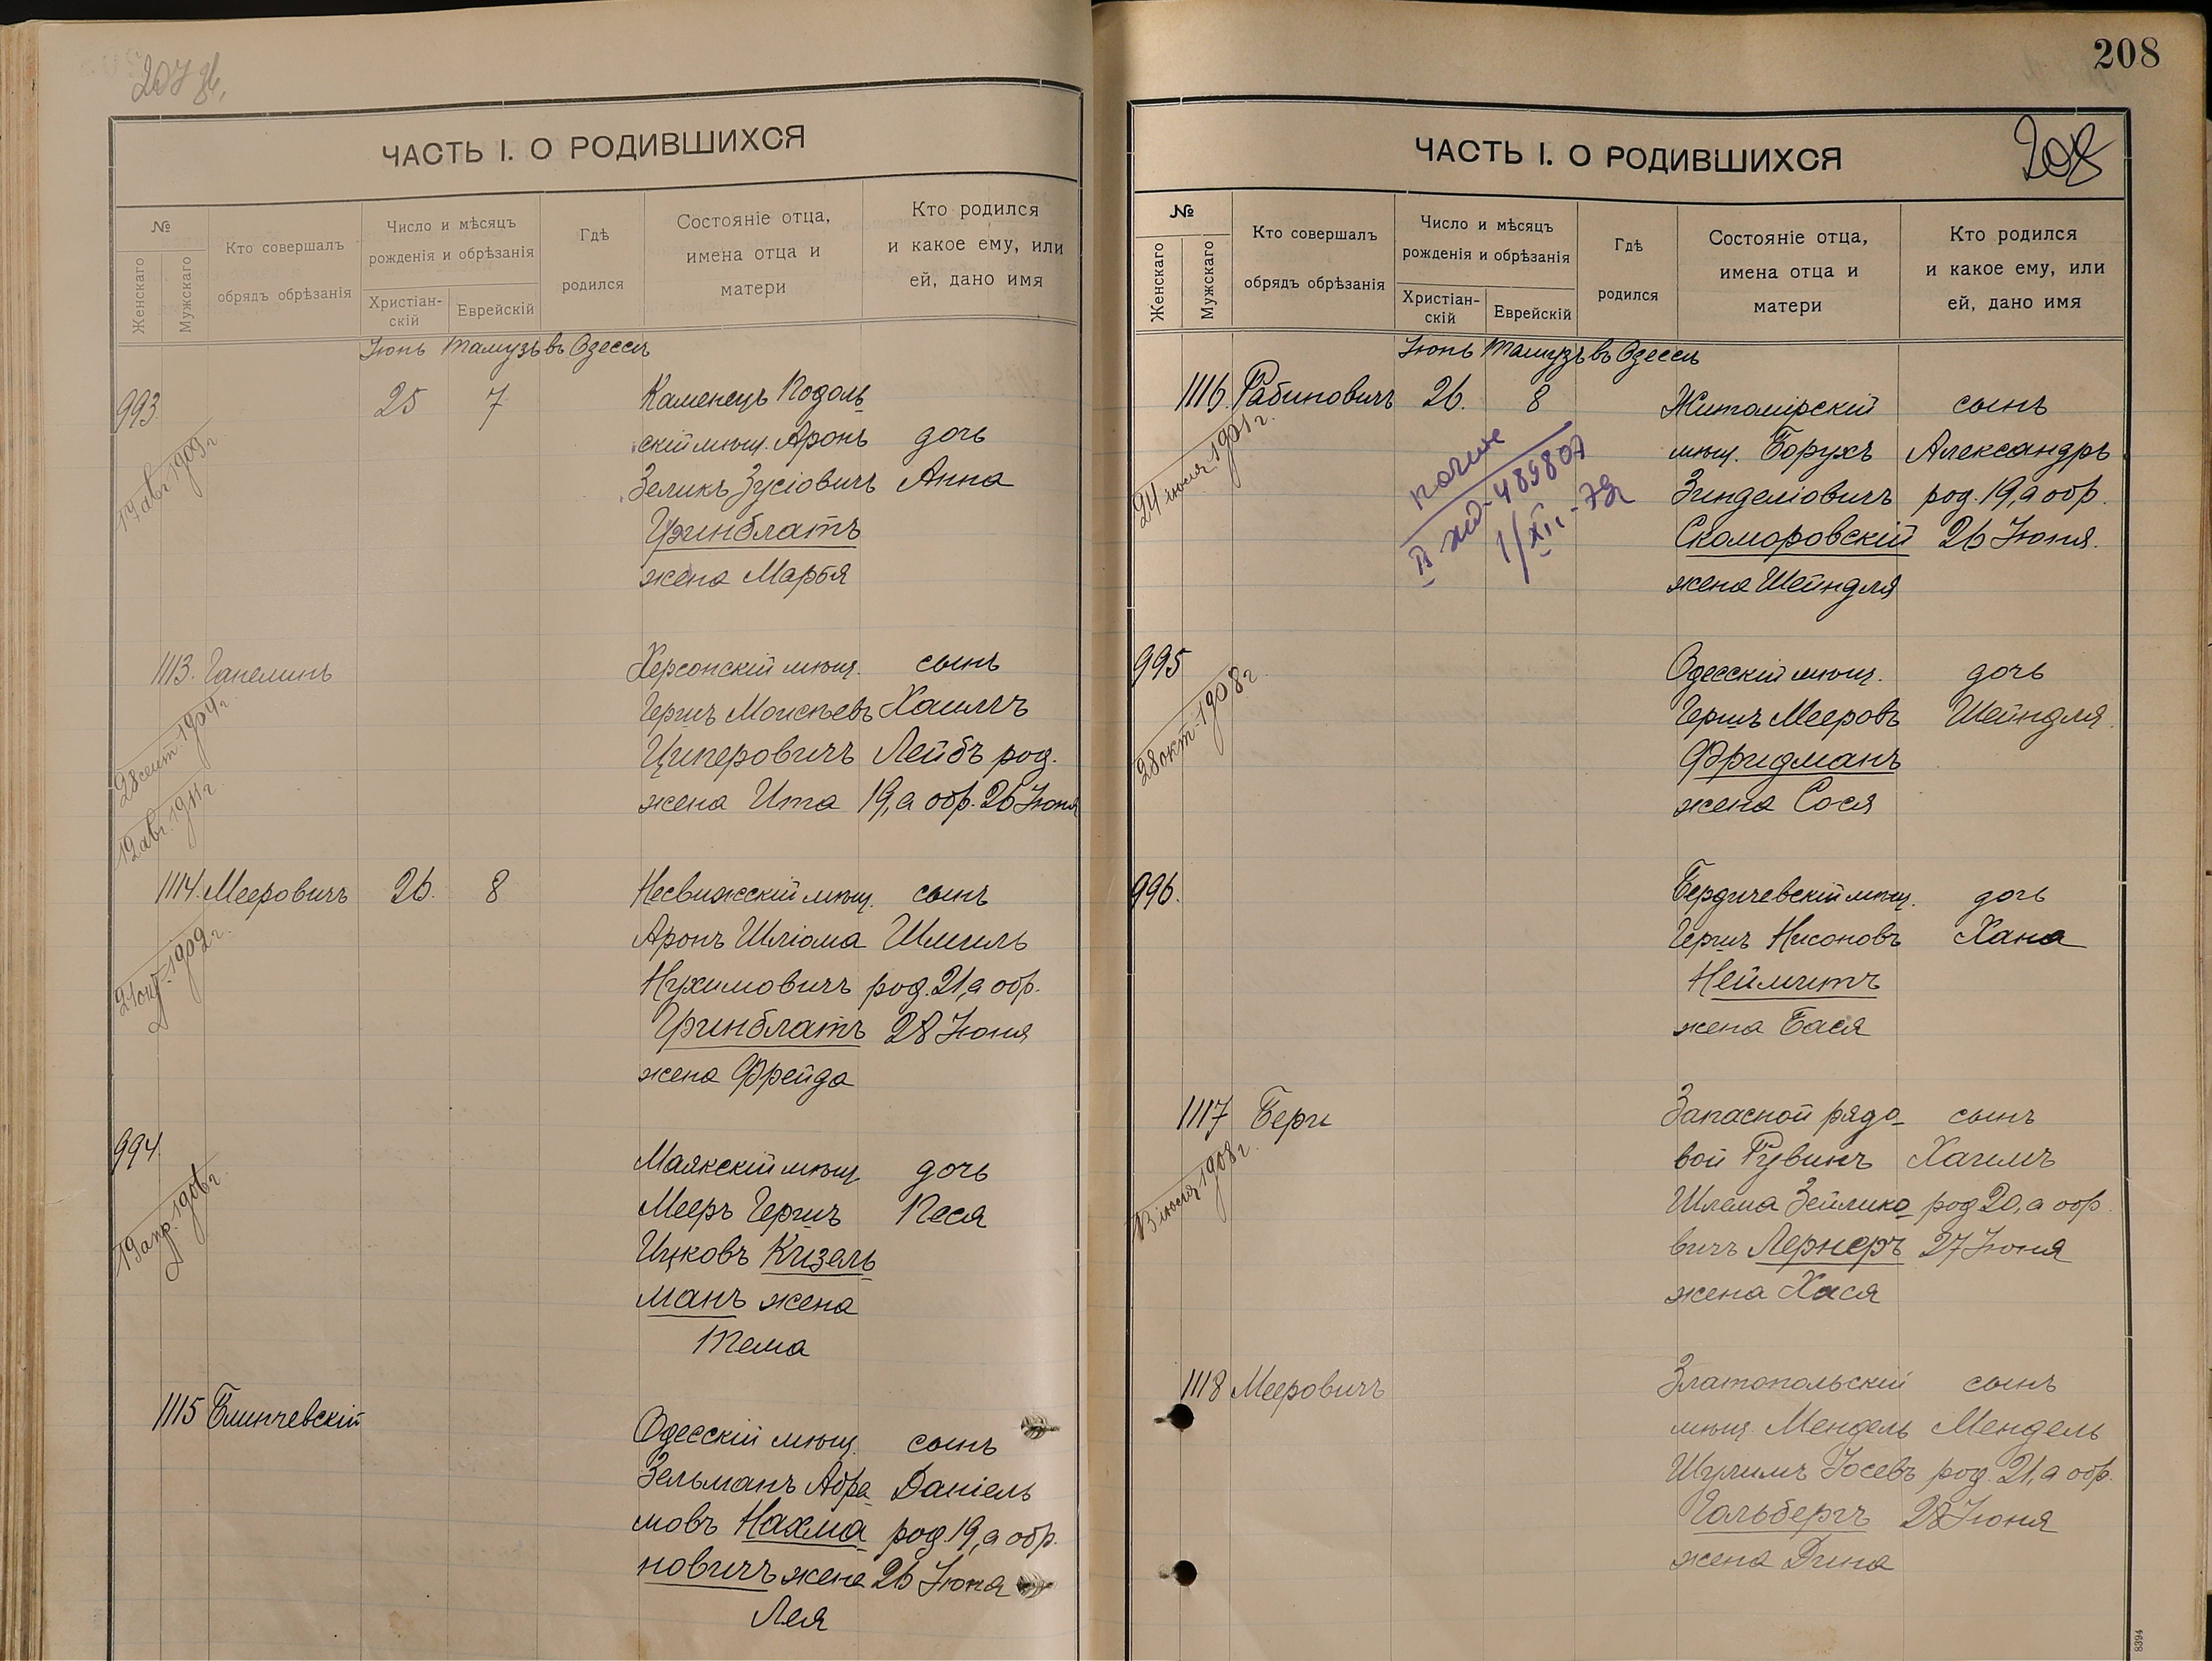 207 об.
ЧАСТЬ I. О РОДИВШИХСЯ
№
Женскаго
Мужскаго
Кто совершалъ
обрядъ обрѣзанія
Число и мѣсяцъ
рожденія и обрѣзанія
Христіан-
скій
Еврейскій
Гдѣ
родился
Состояніе отца,
имена отца и
матери
Кто родился
и какое ему, или
ей, дано имя
Іюнь Тамузъ въ Одессѣ
993 25 7 Каменецъ Подоль
скій мѣщ. Аронъ дочь
Зеликъ Зусіовичъ Анна
Гринблатъ
жена Марья
17 авг 1909 г.
1113. Гапелинъ Херсонскій мѣщ. сынъ
Гершъ Моисѣевъ Хаимъ
Циперовичъ Лейбъ род.
жена Ита 19, а обр. 26 Іюня
28 сент. 1904 г.
12 авг. 1911 г.
1114. Мееровичъ 26. 8 Несвижскій мѣщ. сынъ
Аронъ Шліома Шмиль
Нухимовичъ род. 21, а обр.
Гринблатъ 28 Іюня
жена Фрейда
1909 г.
994 Маякскій мѣщ дочь
Мееръ Гершъ Песя
Ицковъ Кизель
манъ жена
Тема
19 апр. 1906 г.
1115 Блинчевскій Одесскій мѣщ. сынъ
Зельманъ Абра- Даніель
мовъ Нахма род. 19, а обр.
новичъ жена 26 Іюня
Лея
208
ЧАСТЬ I. О РОДИВШИХСЯ
208
№
Женскаго
Мужскаго
Кто совершалъ
обрядъ обрѣзанія
Число и мѣсяцъ
рожденія и обрѣзанія
Христіан-
скій
Еврейскій
Гдѣ
родился
Состояніе отца,
имена отца и
матери
Кто родился
и какое ему, или
ей, дано имя
Іюнь Тамузъ въ Одессѣ
1116. Рабиновичъ 26. 8 Житомірскій сынъ
мѣщ. Борухъ Александръ
Зинделіовичъ род. 19, а обр.
Скоморовскій 26 Іюня.
жена Шейндля
24 іюля 1901 г.
485807
1/XII-
995 Одесскій мѣщ. дочь
Гершъ Мееровъ Шейндля
Фридманъ
жена Сося
28 окт. 1908 г
996. Бердичевскій мѣщ. дочь
Гершъ Нисоновъ Хана
Неймитъ
жена Бася
1117 Берги Запасной рядо- сынъ
вой Рувинъ Хаимъ
Шлема Зейлико- род 20, а обр.
вичъ Лернеръ 27 Іюня
жена Хася
13 іюля 1908 г.
1118 Мееровичъ Златопольскій сынъ
мѣщ. Мендель Мендель
Шулимъ Іосевъ род. 21, а обр.
Гольбергъ 28 Іюня
жена Дина
8394